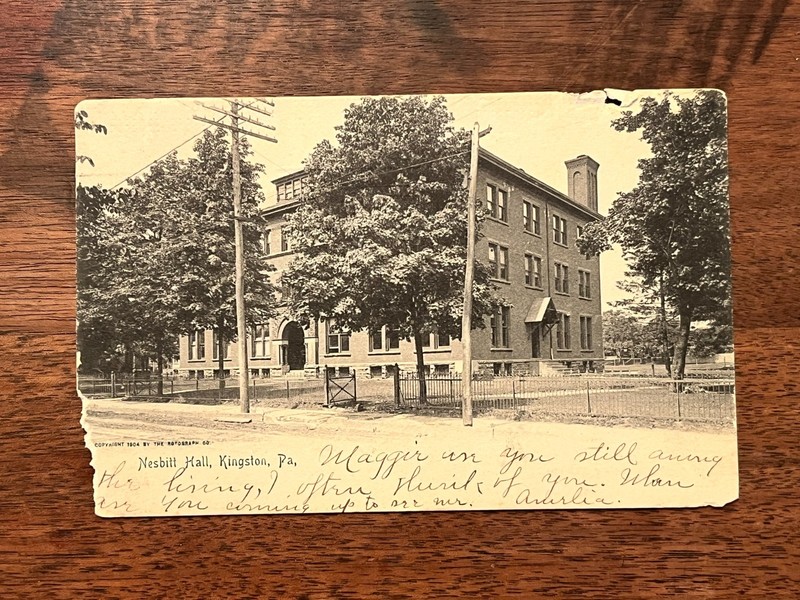 COPYRIGHT 1904 BY THE ROTOGRAPH CO.
Nesbitt Hall, Kingston, Pa, Maggie are you still among
the living, I often think of you. When
are you coming up to see me. Amelia.